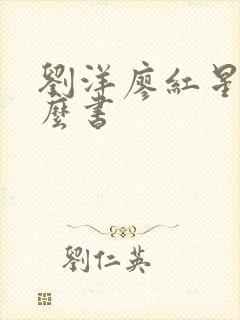 劉洋廖紅星
麼書
劉仁英